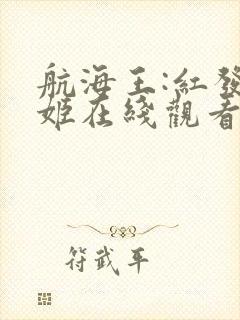 航海王:紅發
姬在綫觀看
符武平